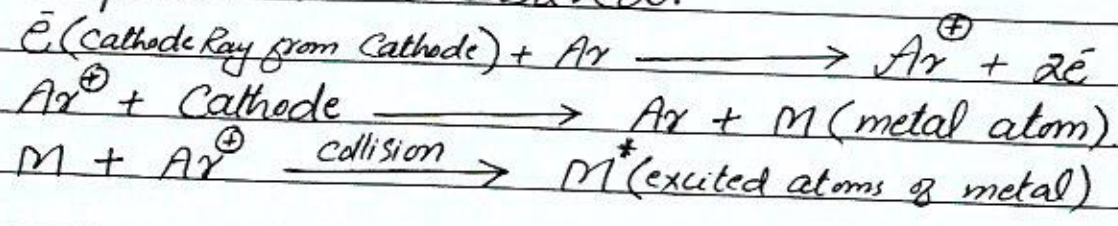 ē (Cathode Ray from Cathode) + Ar ⟶ Ar⊕ + 2ē
Ar⊕ + Cathode ⟶ Ar + M (metal atom)
M + Ar⊕ collision ⟶ M* (excited atoms of metal)